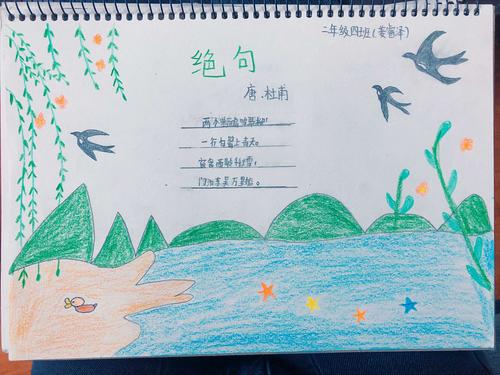 二年级四班(姜富泽)
绝句
唐.杜甫
两个
一行白鹭上青天。
窗含西岭千秋雪,
门泊东吴万里船。